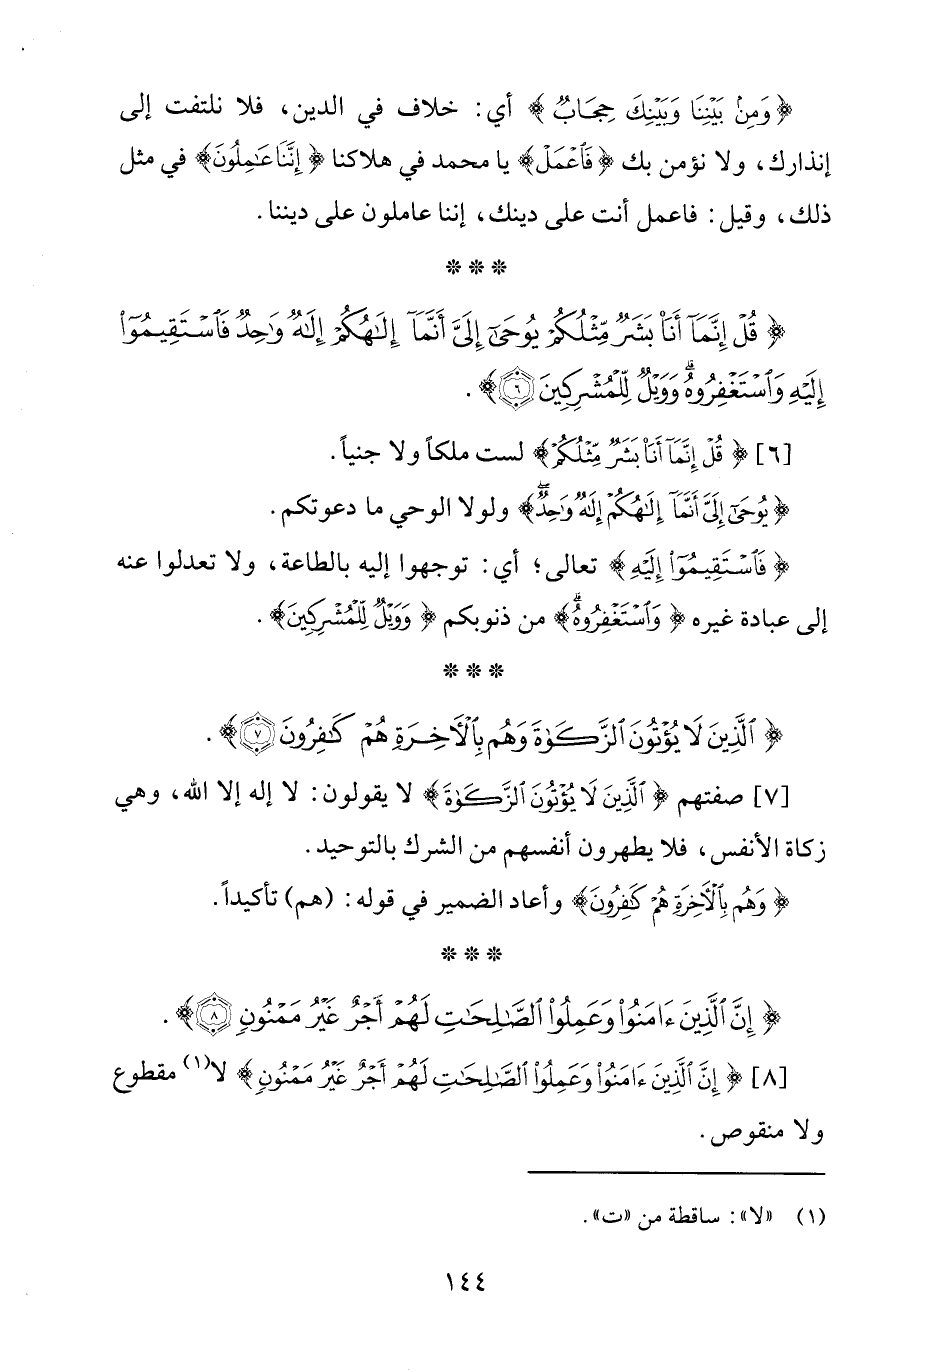 ﴿وَمِنۢ بَيْنِنَا وَبَيْنِكَ حِجَابٌ﴾ أي: خلاف في الدين، فلا نلتفت إلى
إنذارك، ولا نؤمن بك ﴿فَٱعْمَلْ﴾ يا محمد في هلاكنا ﴿إِنَّنَا عَٰمِلُونَ﴾ في مثل
ذلك، وقيل: فاعمل أنت على دينك، إننا عاملون على ديننا.
* * *
﴿قُلْ إِنَّمَآ أَنَا۠ بَشَرٌ مِّثْلُكُمْ يُوحَىٰٓ إِلَىَّ أَنَّمَآ إِلَٰهُكُمْ إِلَٰهٌ وَٰحِدٌ فَٱسْتَقِيمُوٓا۟
إِلَيْهِ وَٱسْتَغْفِرُوهُ ۗ وَوَيْلٌ لِّلْمُشْرِكِينَ ٦﴾.
[٦] ﴿قُلْ إِنَّمَآ أَنَا۠ بَشَرٌ مِّثْلُكُمْ﴾ لست ملكاً ولا جنياً.
﴿يُوحَىٰٓ إِلَىَّ أَنَّمَآ إِلَٰهُكُمْ إِلَٰهٌ وَٰحِدٌ ۖ﴾ ولولا الوحي ما دعوتكم.
﴿فَٱسْتَقِيمُوٓا۟ إِلَيْهِ﴾ تعالى؛ أي: توجهوا إليه بالطاعة، ولا تعدلوا عنه
إلى عبادة غيره ﴿وَٱسْتَغْفِرُوهُ ۗ﴾ من ذنوبكم ﴿وَوَيْلٌ لِّلْمُشْرِكِينَ﴾.
* * *
﴿ٱلَّذِينَ لَا يُؤْتُونَ ٱلزَّكَوٰةَ وَهُم بِٱلْأَخِرَةِ هُمْ كَٰفِرُونَ ٧﴾.
[٧] صفتهم ﴿ٱلَّذِينَ لَا يُؤْتُونَ ٱلزَّكَوٰةَ﴾ لا يقولون: لا إله إلا الله، وهي
زكاة الأنفس، فلا يطهرون أنفسهم من الشرك بالتوحيد.
﴿وَهُم بِٱلْأَخِرَةِ هُمْ كَٰفِرُونَ﴾ وأعاد الضمير في قوله: (هم) تأكيداً.
* * *
﴿إِنَّ ٱلَّذِينَ ءَامَنُوا۟ وَعَمِلُوا۟ ٱلصَّٰلِحَٰتِ لَهُمْ أَجْرٌ غَيْرُ مَمْنُونٍ ٨﴾.
[٨] ﴿إِنَّ ٱلَّذِينَ ءَامَنُوا۟ وَعَمِلُوا۟ ٱلصَّٰلِحَٰتِ لَهُمْ أَجْرٌ غَيْرُ مَمْنُونٍ﴾ لا(١) مقطوع
ولا منقوص.
(١) «لا»: ساقطة من «ت».
١٤٤